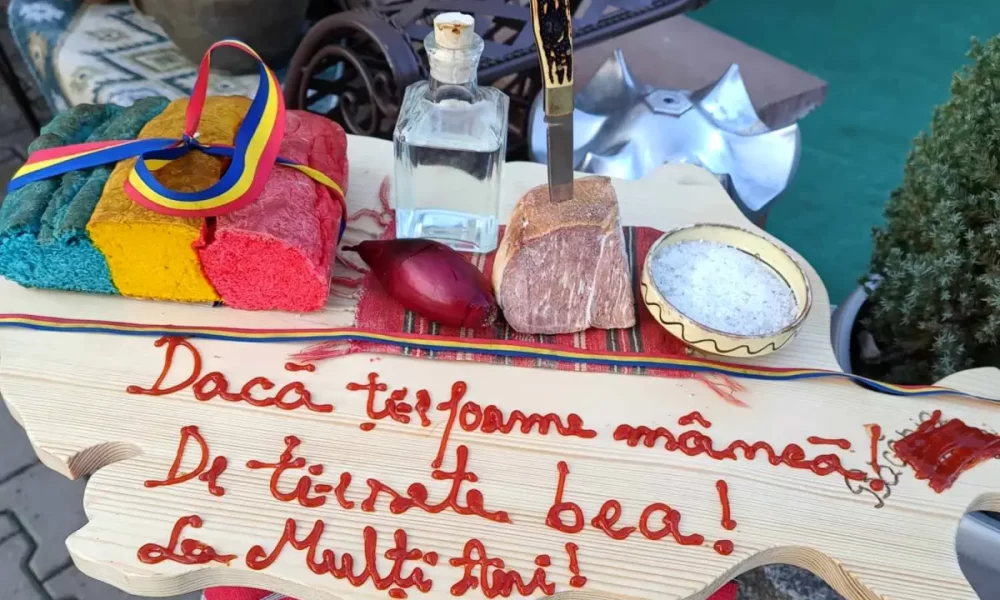 Dacă ți-i foame mâncă!
De ți-i sete bea!
La Mulți Ani!